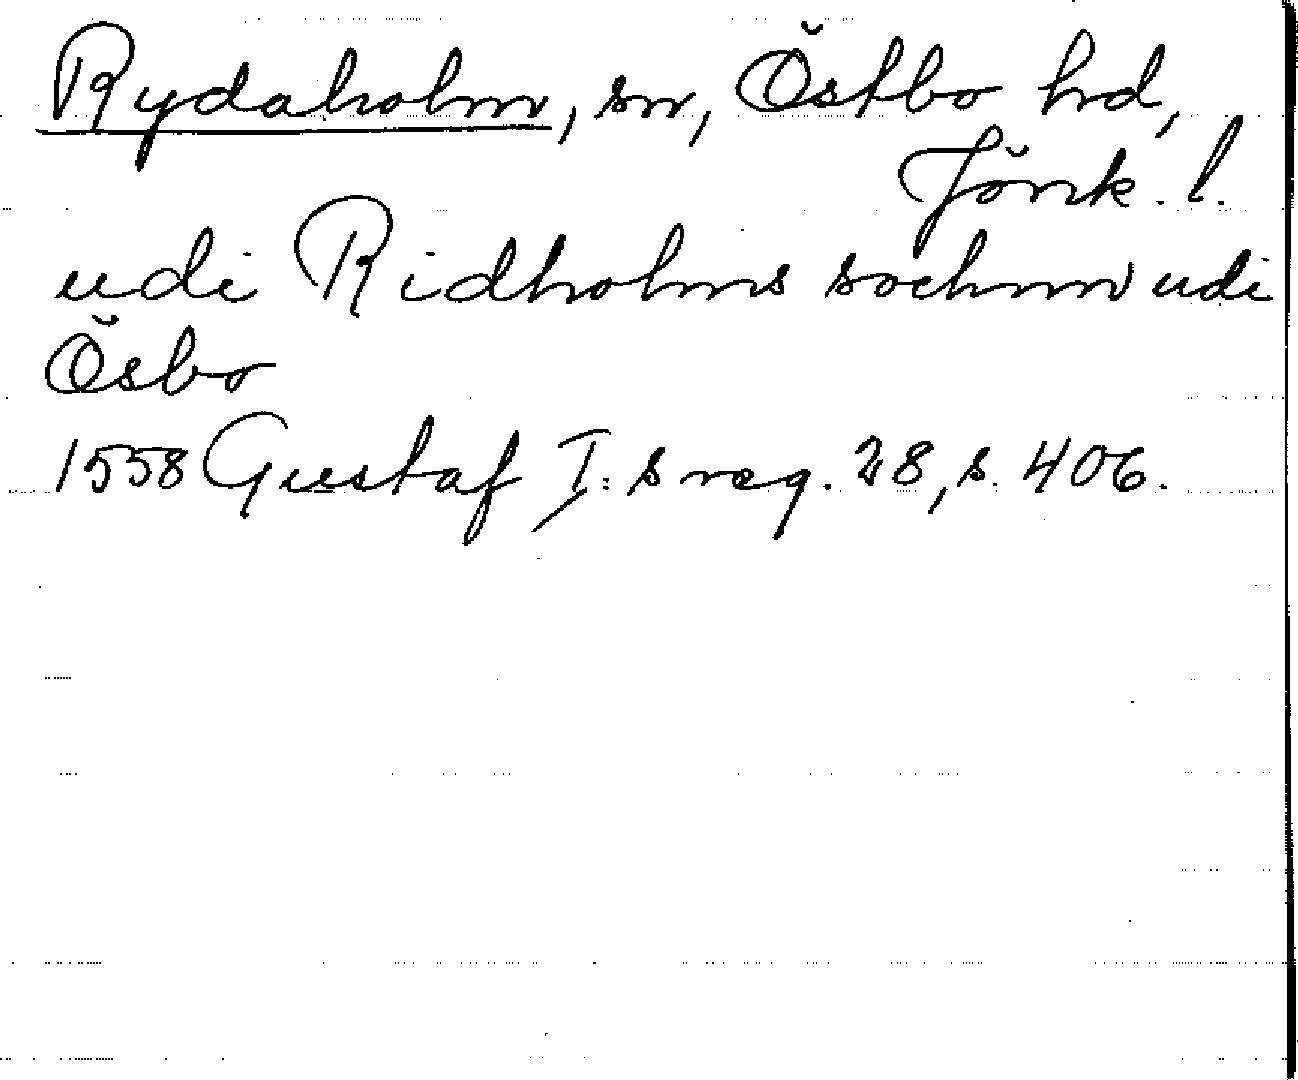 Rydaholm, sn, Östbo hd,
Jönk. l.
udi Ridholms sochnn udi
Ösbo
1558 Gustaf I: s reg. 28, s. 406.